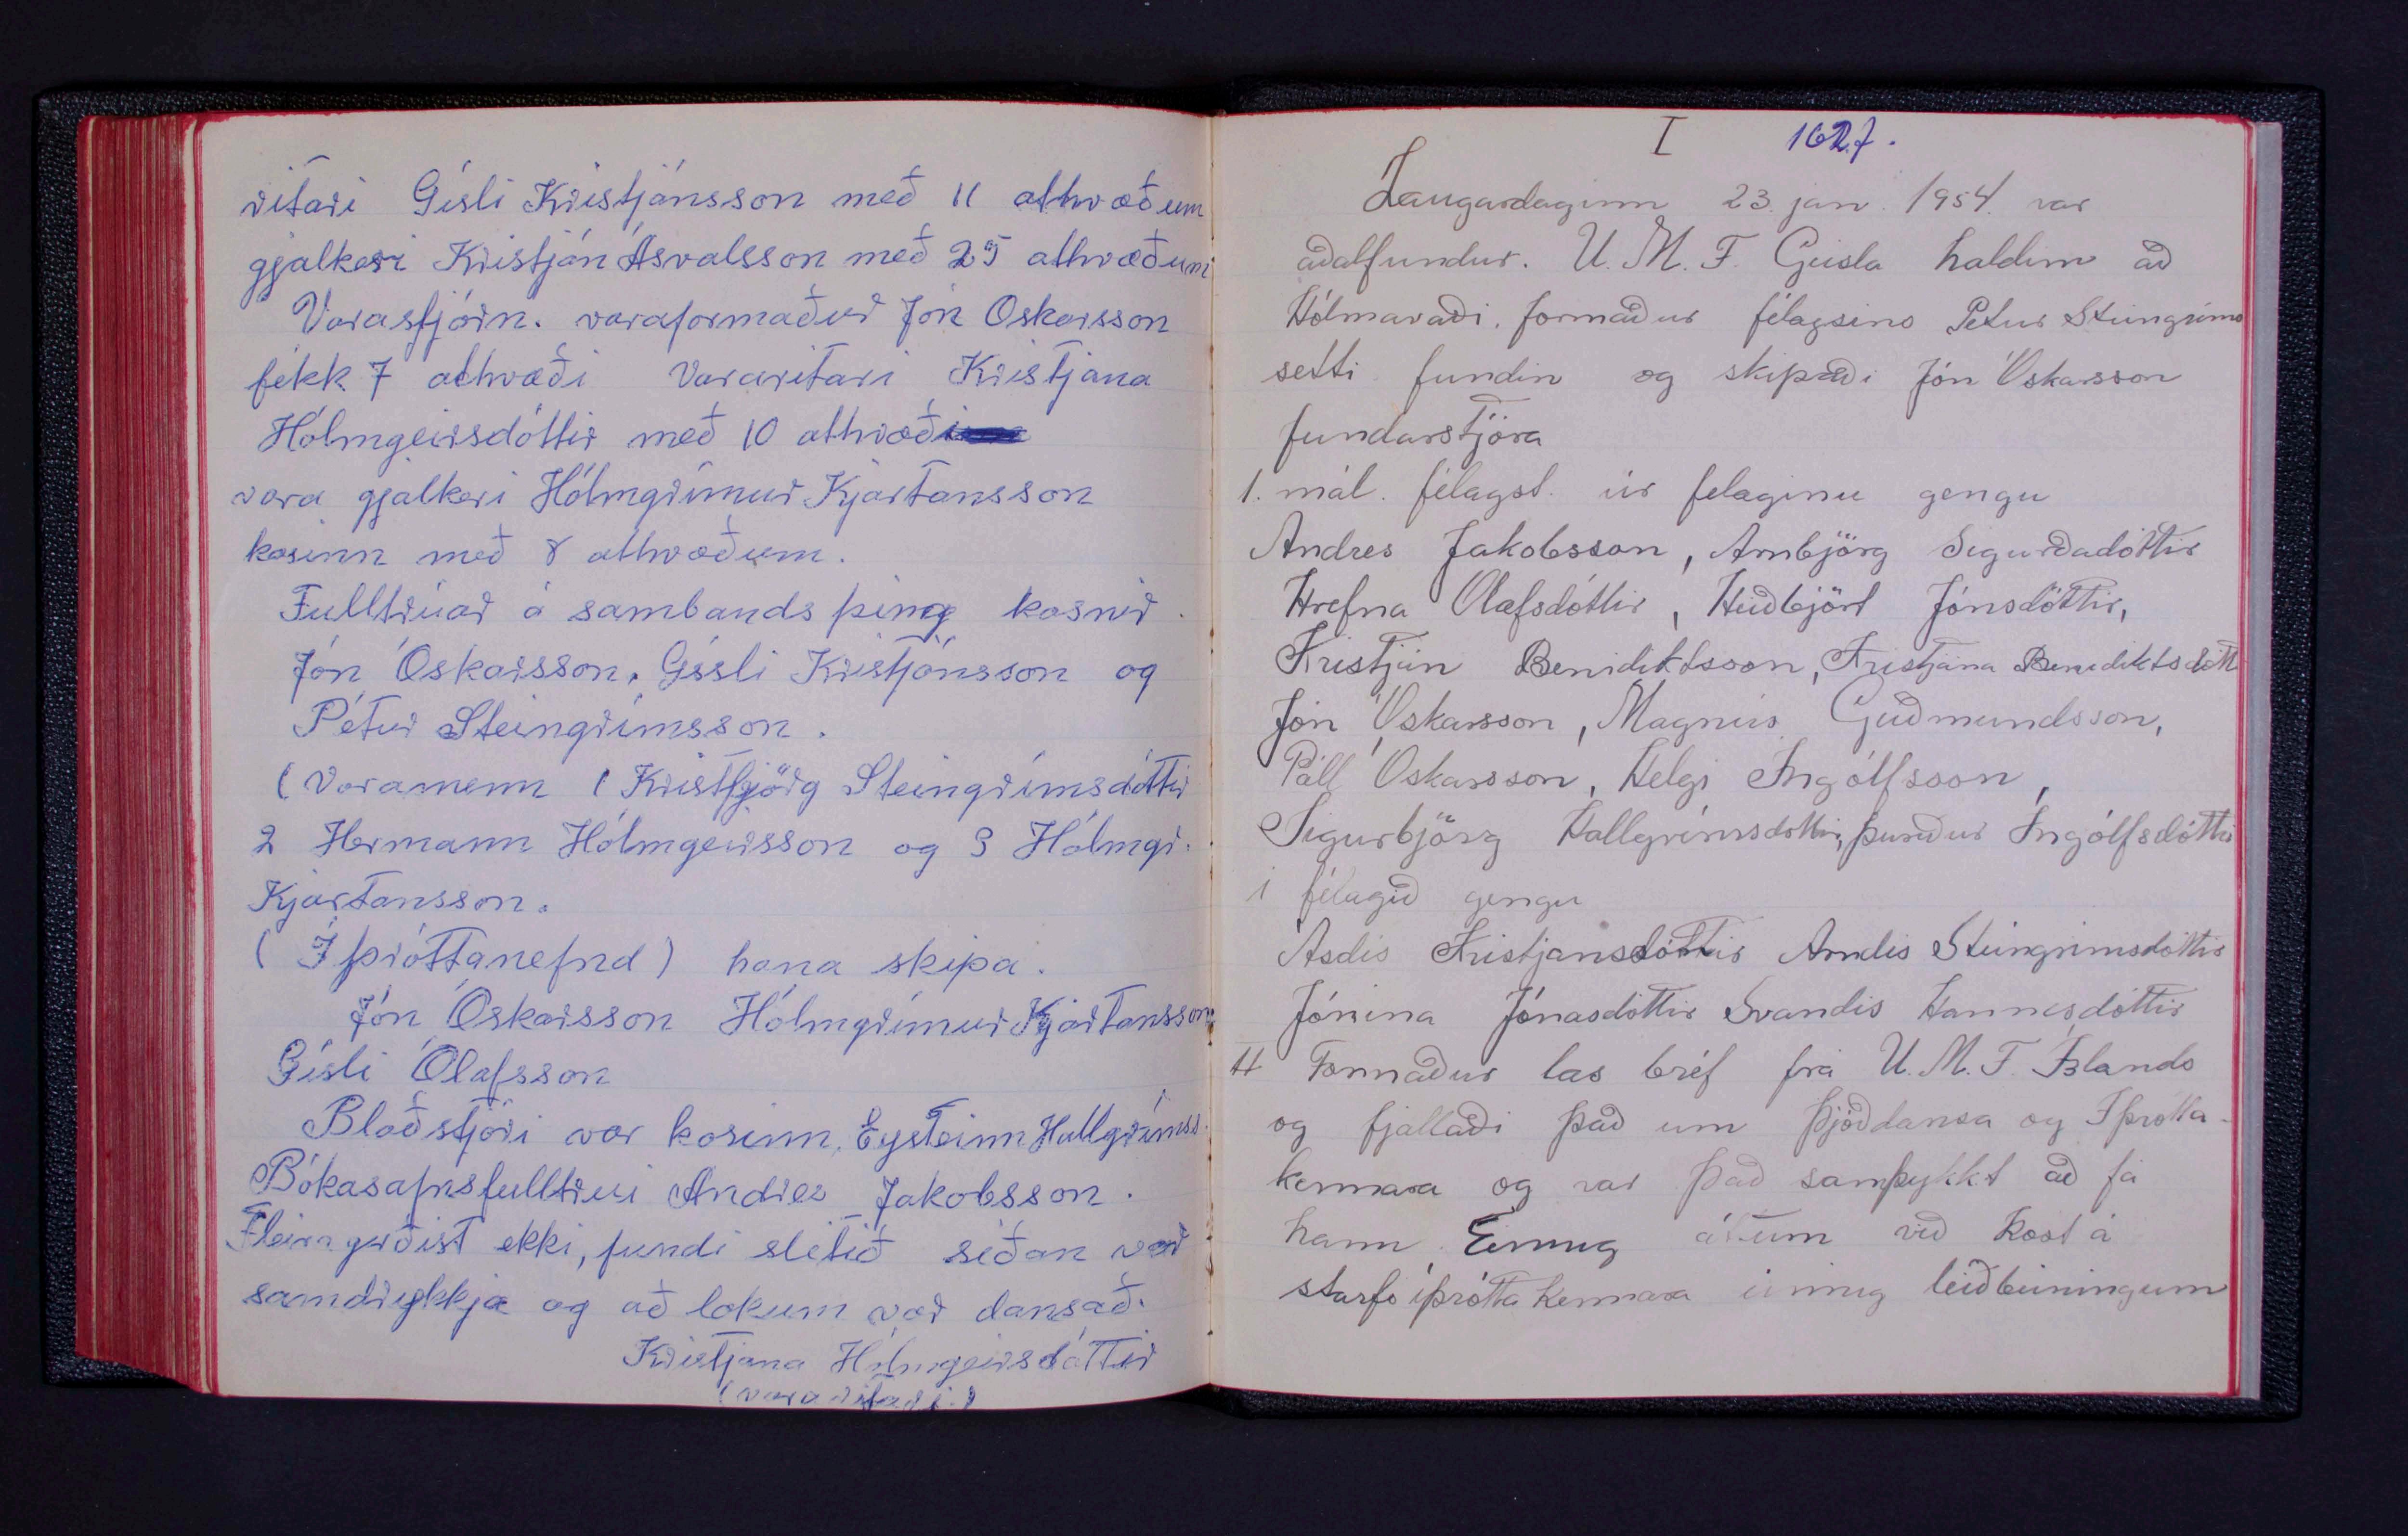 ritari Gísli Kristjánsson með 11 athvæðum
gjalkeri Kristján Ásvalsson með 25 athvæðum
Varastjórn. varaformaður Jón Oskarsson
fékk 7 athvæði Vararitari Kristjana
Hólmgeirsdóttir með 10 athvæði
vara gjalkeri Hólmgrímur Kjartansson
kosinn með 8 athvæðum.
Fulltrúar á sambands þing kosnir.
Jón Óskarsson, Gísli Kristjónsson og
Pétur Steingrímsson.
(Varamenn 1 Kristbjörg Steingrímsdóttir
2 Hermann Hólmgeirsson og 3 Hólmgr.
Kjartansson.
(Íþróttanefnd) hana skipa.
Jón Óskarsson Hólmgrímur Kjartansson
Gísli Ólafsson
Blaðstjóri var kosinn, Eysteinn Hallgrímss.
Bókasafnsfulltrúi Andres Jakobsson.
Fleira gerðist ekki, fundi slitið síðan var
samdrykkja og að lokum var dansað.
Kristjana Hólmgeirsdóttir
(vararitari.)
I 27.
Laugardaginn 23. jan. 1954. var
aðalfundur. U. M. F. Geisla haldinn að
Hólmavaði. formaður félagsins Petur Steingríms
setti fundin og skipaði Jón Óskarsson
fundarstjóra
1. mál. félagst. úr felaginu gengu
Andres Jakobsson, Arnbjörg Sigurðadóttir
Hrefna Ólafsdóttir, Heiðbjört Jónsdóttir,
Kristján Benidiktsson, Kristjana Benediktsdótt
Jón Óskarsson, Magnús Guðmundsson,
Páll Óskarsson, Helgi Ingólfsson,
Sigurbjörg Hallgrímsdottir, þuriður Ingólfsdóttir
í félagið gengu
Ásdis Kristjansdóttir Arndis Steingrimsdóttir
Jónina Jónasdóttir Svandis Hannesdóttir
II Formaður las bréf frá U. M. F. Íslands
og fjallaði það um þjóðdansa og Iþrótta-
kennara og var það samþykkt að fá
hann. Einnig áttum við kost á
starfs íþrótta kennara einnig leiðbeiningum